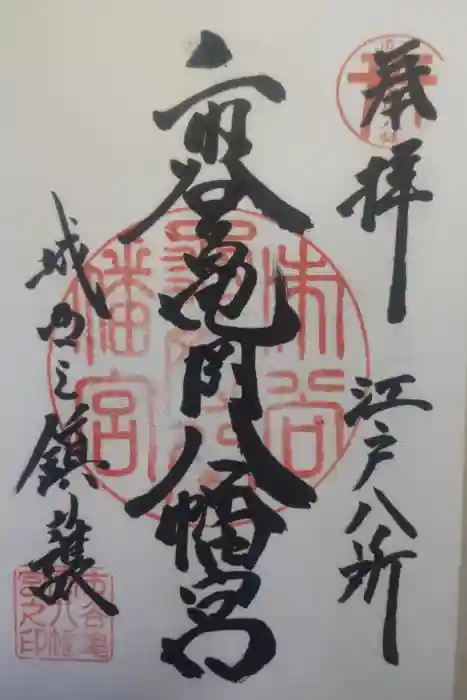 奉拝
江戸八所
市谷亀岡八幡宮
城西之鎮護
市谷亀岡八幡宮
市谷亀岡八幡宮之印